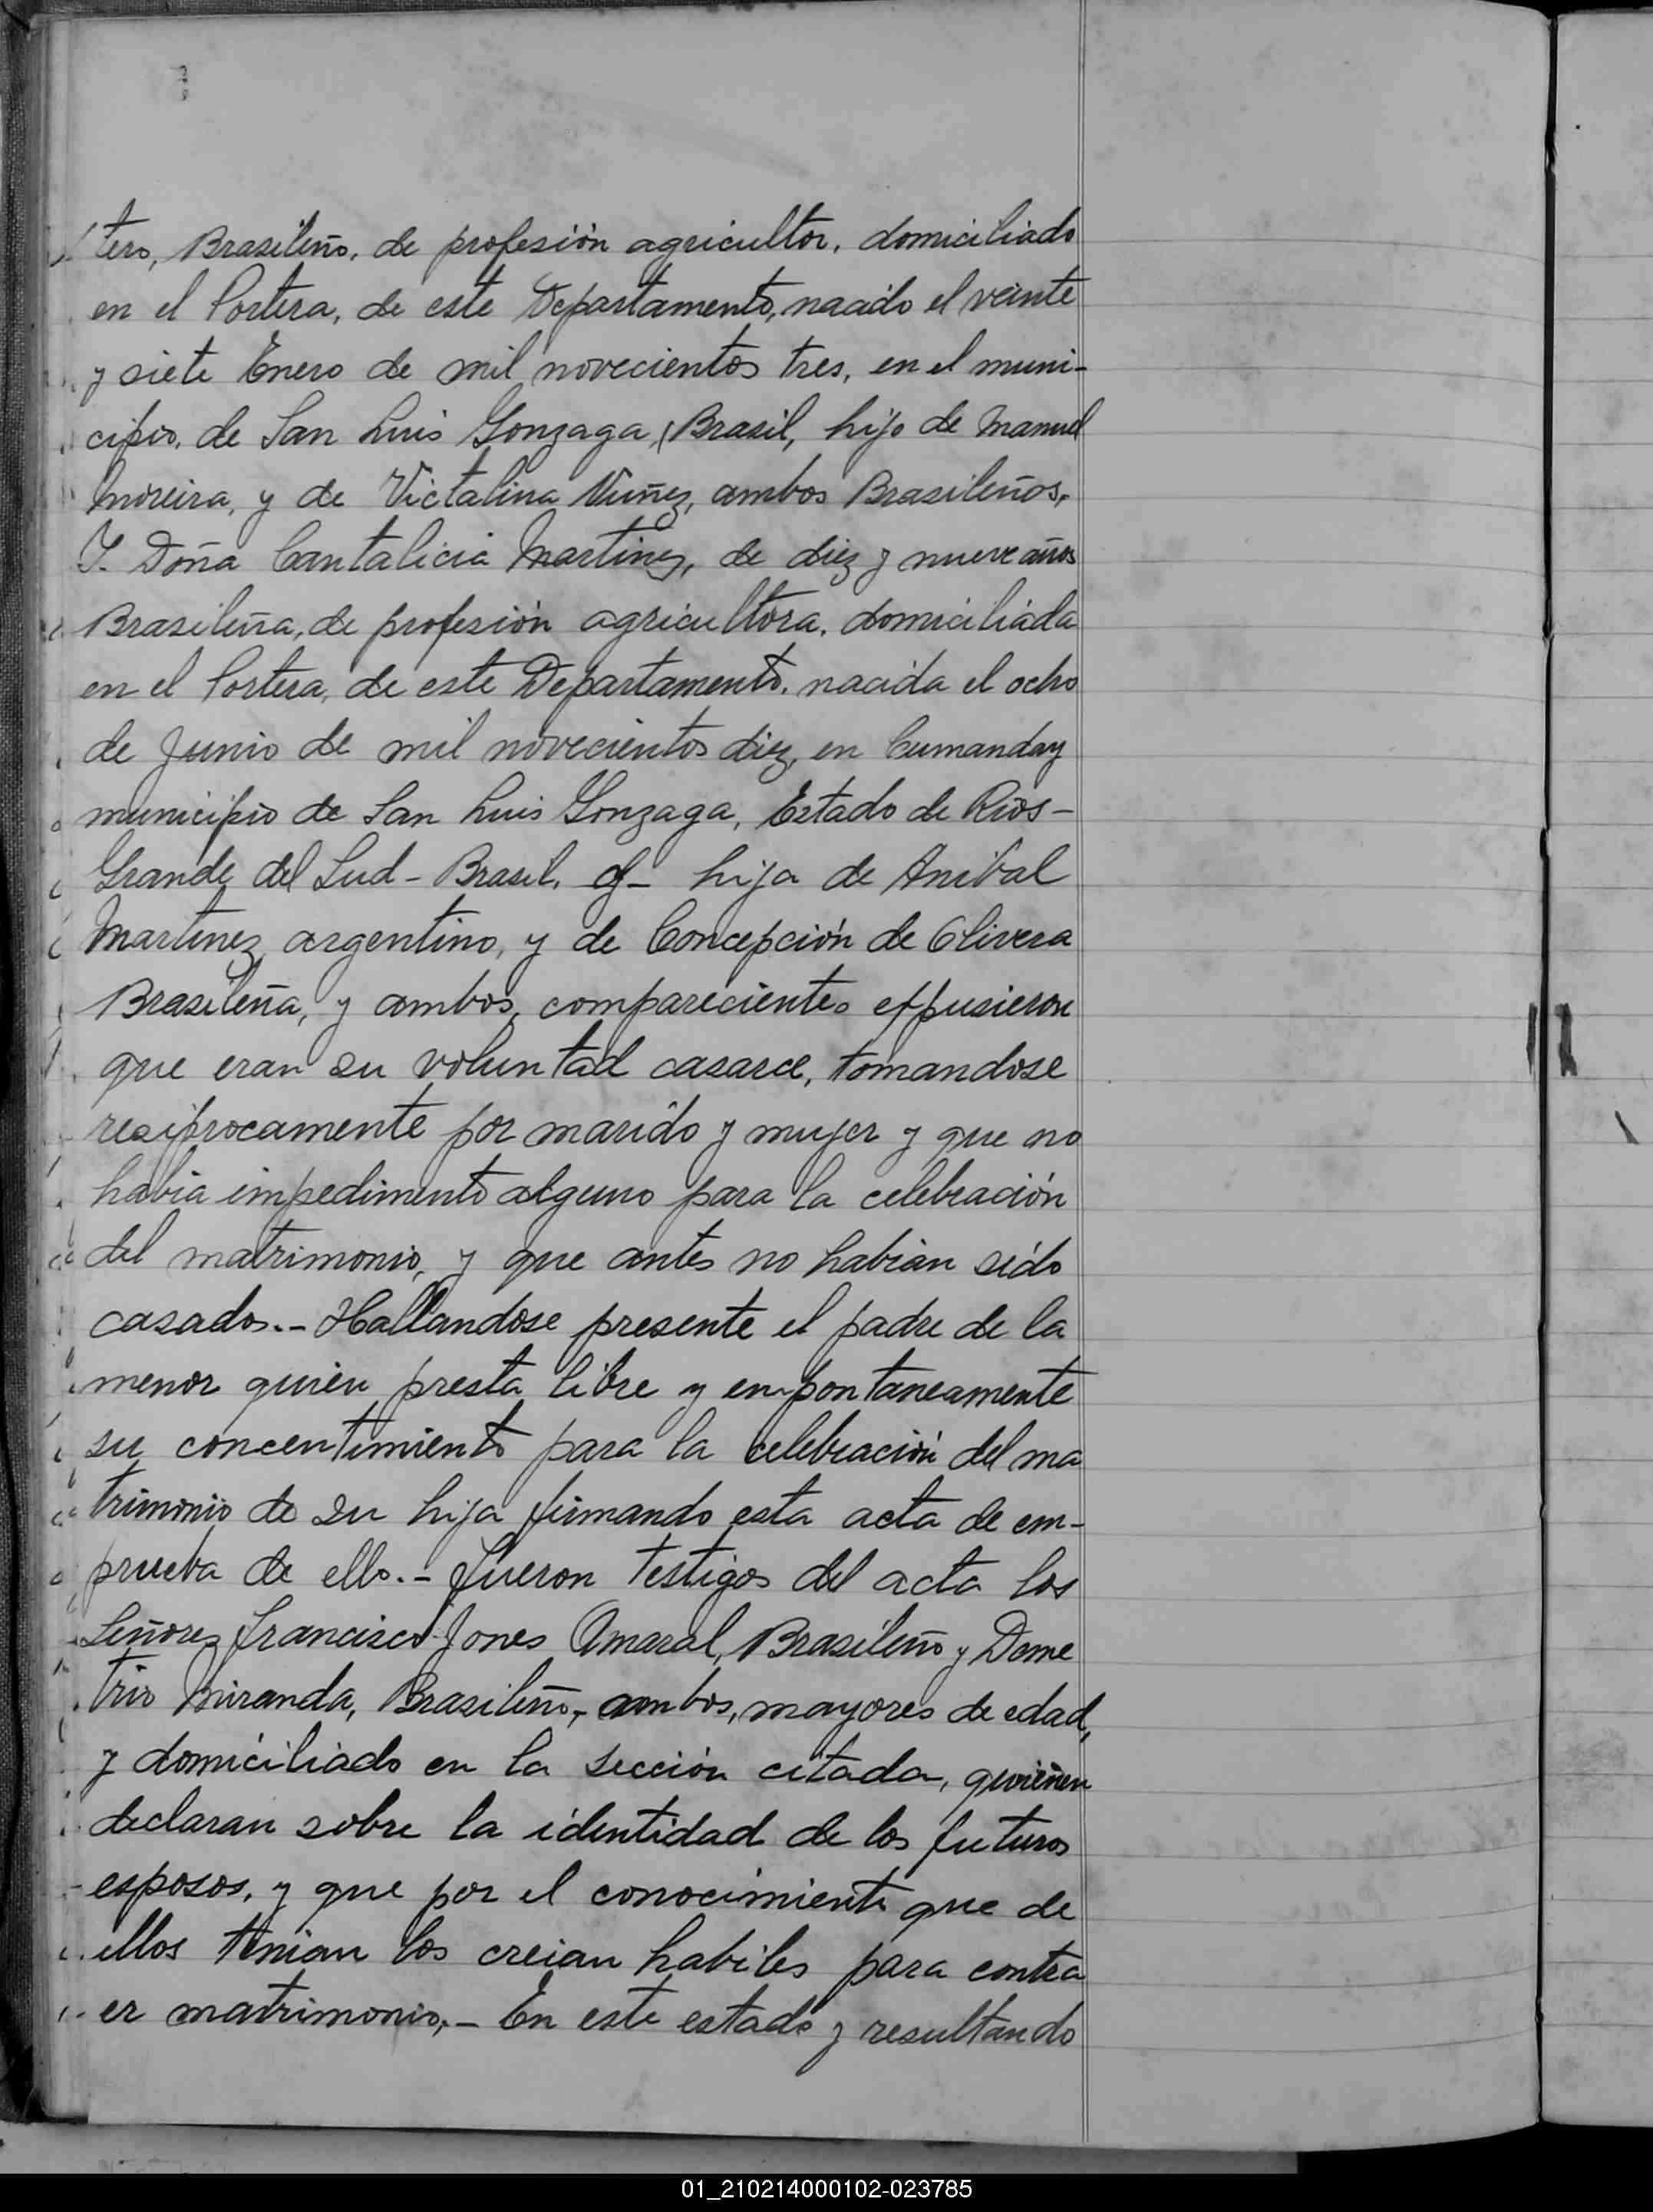 tero, Brasileño, de profesión agricultor, domiciliado
en el Portera, de este Departamento, nacido el veinte
y siete Enero de mil novecientos tres, en el muni-
cipio, de San Luis Gonzaga, Brasil, hijo de Manuel
Moreira, y de Victalina Nuñez, ambos Brasileños,
Y. Doña Cantalicia Martinez, de diez y nueve años
Brasileña, de profesión agricultora, domiciliada
en el Portera, de este Departamento, nacida el ocho
de Junio de mil novecientos diez, en Cumanday
municipio de San Luis Gonzaga, Estado de Rios-
Grande del Sud - Brasil. hija de Anibal
Martinez argentino, y de Concepción de Olivera
Brasileña, y ambos, comparecientes expusieron
que eran su voluntad casarce, tomandose
resiprocamente por marido y mujer y que no
habia impedimento alguno para la celebración
del matrimonio, y que antes no habian sido
casados.- Hallandose presente el padre de la
menor quien presta libre y enspontaneamente
su concentimiento para la celebración del ma
trimonio de su hija firmando esta acta de em-
prueva de ello.- fueron testigos del acta los
Señores Francisco Jones Amaral, Brasileño y Deme
trio Miranda, Brasileño, ambos, mayores de edad,
y domiciliado en la sección citada, quienen
declaran sobre la identidad de los futuros
esposos, y que por el conocimiento que de
ellos tenian los creian habiles para contra
er matrimonio.- En este estado y resultando
01_210214000102-023785